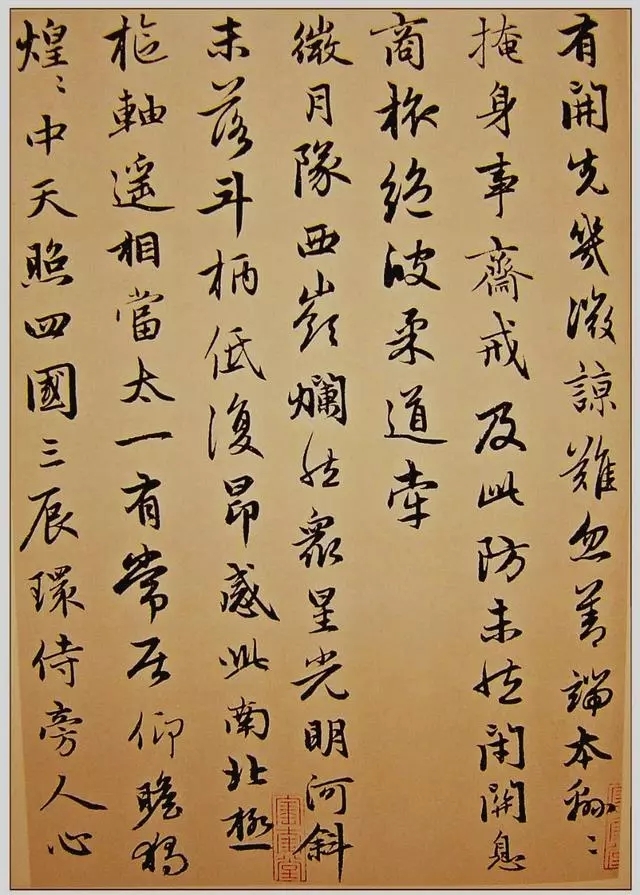 有開先幾微諒難忽善端本緜〻
掩身事齋戒及此防未然閉關息
商旅絕彼柔道牽
微月隊西嶺爛然衆星光明河斜
未落斗柄低復昂感此南北極
樞軸遥相當太一有常居仰瞻獨
煌〻中天照四國三辰環侍旁人心